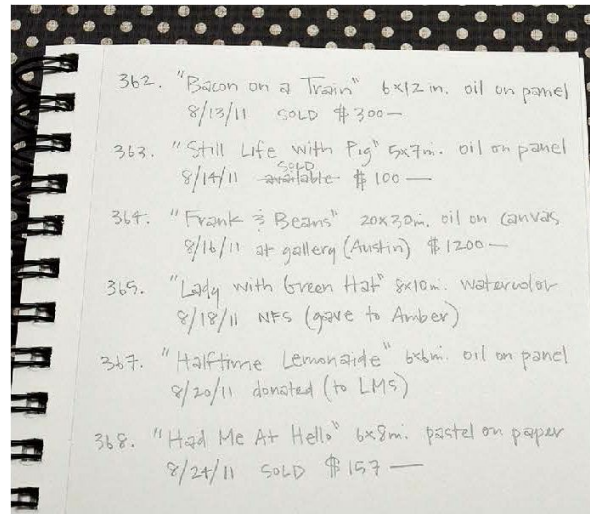 362. "Bacon on a Train" 6x12 in. oil on panel
8/13/11 SOLD $300—
363. "Still Life with Pig" 5x7in. oil on panel
SOLD
8/14/11 available $100—
364. "Frank & Beans" 20x30in. oil on canvas
8/16/11 at gallery (Austin) $1200—
365. "Lady with Green Hat" 8x10in. watercolor
8/18/11 NFS (gave to Amber)
367. "Halftime Lemonaide" 6x6in. oil on panel
8/20/11 donated (to LMS)
368. "Had Me At Hello" 6x8in. pastel on paper
8/24/11 SOLD $157—